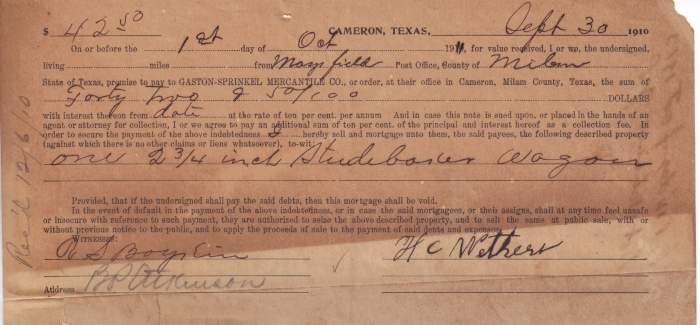 $ 42 50 CAMERON, TEXAS, Sept 30 1910
On or before the 1st day of Oct 1911, for value received, I or we, the undersigned,
living miles from Maysfield Post Office, County of Milam
State of Texas, promise to pay to GASTON-SPRINKEL MERCANTILE CO., or order, at their office in Cameron, Milam County, Texas, the sum of
Forty two & 50/100 DOLLARS
with interest thereon from date at the rate of ten per cent. per annum And in case this note is sued upon, or placed in the hands of an
agent or attorney for collection, I or we agree to pay an additional sum of ten per cent. of the principal and interest hereof as a collection fee. In
order to secure the payment of the above indebtedness I hereby sell and mortgage unto them, the said payees, the following described property
(against which there is no other claims or liens whatsoever), to-wit
one 2 3/4 inch Studebaker Wagon
Provided, that if the undersigned shall pay the said debts, then this mortgage shall be void.
In the event of default in the payment of the above indebtedness, or in case the said mortgagees, or their assigns, shall at any time feel unsafe
or insecure with reference to such payment, they are authorized to seize the above described property, and to sell the same at public sale, with or
without previous notice to the public, and to apply the proceeds of sale to the payment of said debts and expenses.
WITNESSES:
H C Withers
B P Atkinson
Address
Rec'd 12/6/10